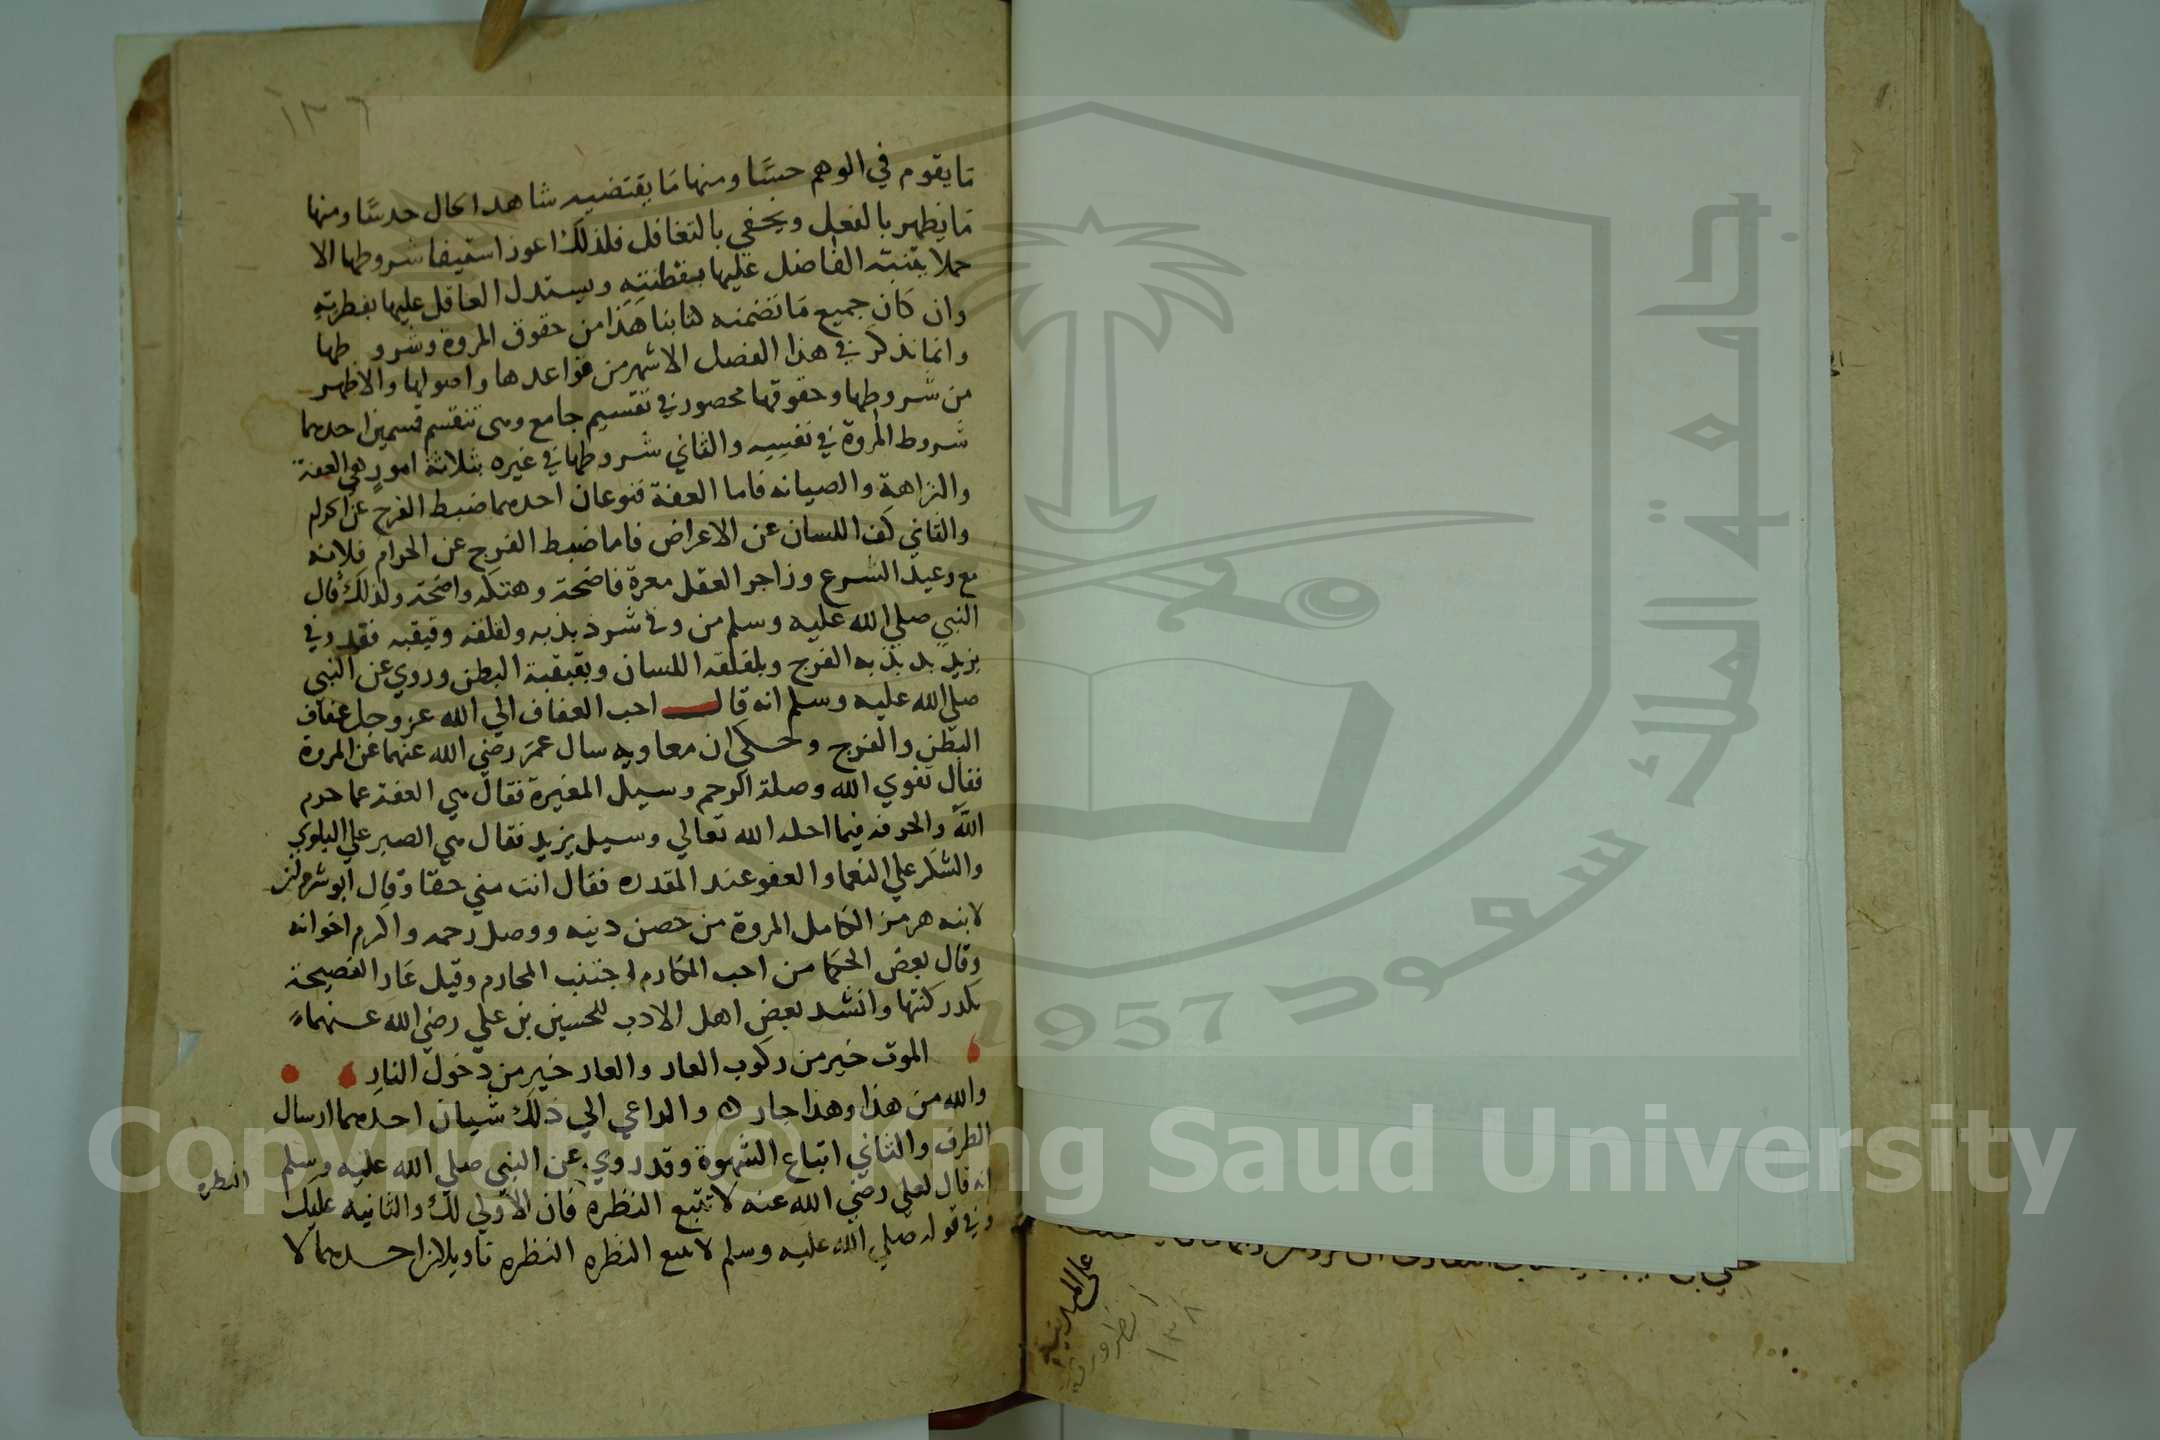 ١٣٦
ما يقوم في الوهم حسًّا ومنها ما يقتضيه شاهد الحال حدسًّا ومنها
ما يظهر بالفعل ويخفي بالتغافل فلذلك اعوز استيفا شروطها الا
جملا يتنبه الفاضل عليها بيقظته ويستدل العاقل عليها بفطرته
وان كان جميع ما تضمنه كتابنا هذا من حقوق المروة وشروطها
وانما نذكر في هذا الفصل الاشهر من قواعدها واصولها والاظهر
من شروطها وحقوقها محصور في تقسيم جامع وهي تنقسم قسمين احدهما
شروط المروة في نفسه والثاني شروطها في غيره ثلاثة امور هي العفة
والنزاهة والصيانه فاما العفة فنوعان احدهما ضبط الفرج عن الحرام
والثاني كف اللسان عن الاعراض فاما ضبط الفرج عن الحرام فلانه
مع وعيد الشرع وزاجر العقل معرة فاضحة وهتكه واضحة ولذلك قال
النبي صلي الله عليه وسلم من وقي شر ذبذبه ولقلقه وقبقبه فقد وقي
يريد بذبذبه الفرج وبلقلقه اللسان وبقبقبة البطن وروي عن النبي
صلي الله عليه وسلم انه قال احب العفاف الي الله عز وجل عفاف
البطن والفرج وحكي ان معاويه سال عمر رضي الله عنهما عن المروة
فقال تقوي الله وصلة الرحم وسيل المغيرة فقال هي العفة عما حرم
الله والحرفه فيما احله الله تعالي وسيل يزيد فقال هي الصبر علي البلوي
والشكر علي النعما والعفو عند المقدره فقال انت مني حقا وقال
لابنه هرمز الكامل المروة من حصن دينه ووصل رحمه واكرم اخوانه
وقال بعض الحكما من احب المكارم اجتنب المحارم وقيل عار الفضيحة
يكدر لذتها وانشد بعض اهل الادب للحسين بن علي رضي الله عنهما
الموت خير من ركوب العار والعار خير من دخول النار
والله من هذا وهذا جار والداعي الي ذلك شيان احدهما ارسال
الطرف والثاني اتباع الشهوة وقد روي عن النبي صلي الله عليه وسلم
انه قال لعلي رضي الله عنه لا تتبع النظره فان الاولي لك والثانيه عليك
النظره
وفي قوله صلي الله عليه وسلم لا تتبع النظره النظره تاويلان احدهما لا
على المدينة
انظر ورقة
١٣٨
جامعة الملك سعود
1957
Copyright © King Saud University